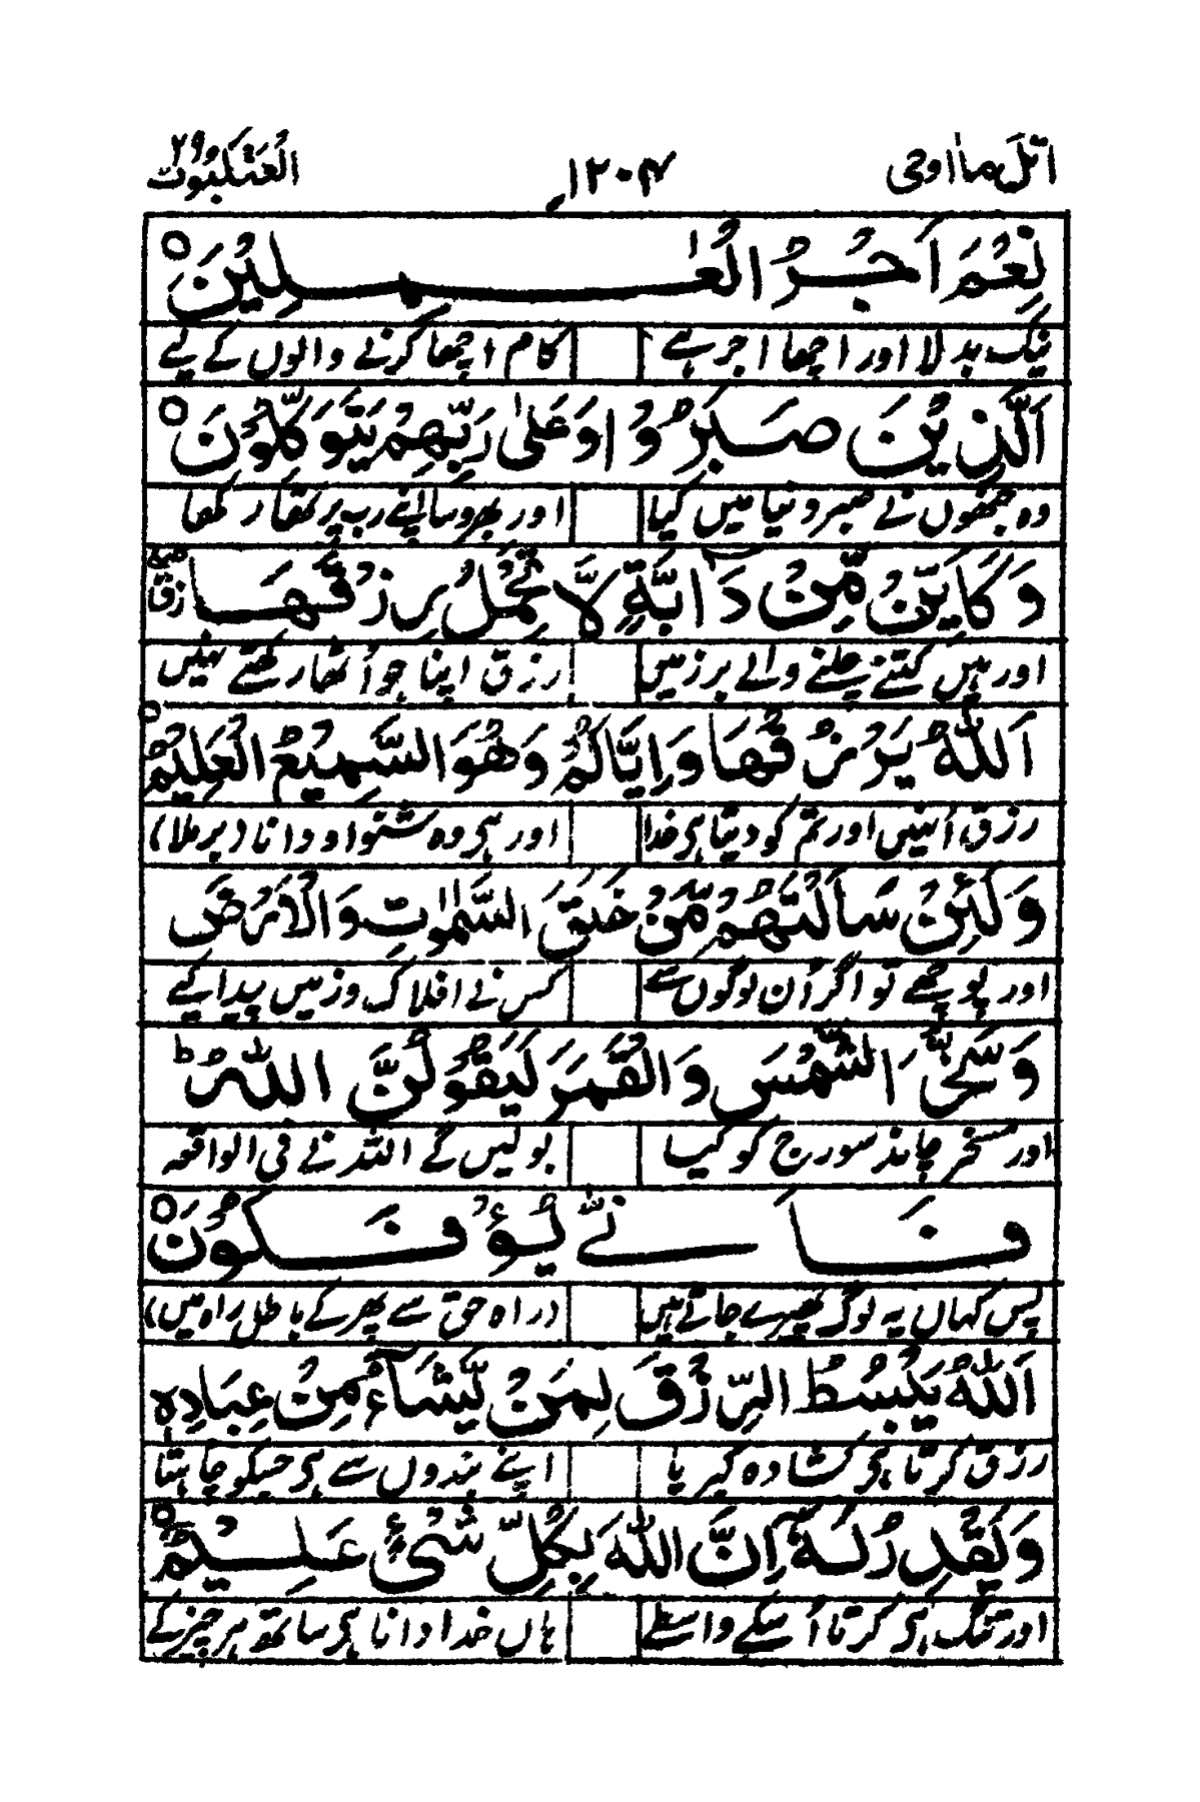 اتل ما اوحی ۱۲۰۴ العنکبوت ۲۹
نِعْمَ اَجْرُ الْعٰمِلِیْنَ ○
نیک بدلا اور اچھا اجر ہے کام اچھا کرنے والوں کے لیے
الَّذِیْنَ صَبَرُوْا وَعَلٰی رَبِّهِمْ یَتَوَکَّلُوْنَ ○
وہ جنھوں نے صبر دنیا میں کیا اور بھروسا اپنے رب پر تھا رکھا
وَکَاَیِّنْ مِّنْ دَآبَّةٍ لَّا تَحْمِلُ رِزْقَهَا
اور ہیں کتنے چلنے والے بر زمیں رزق اپنا جو اُٹھا رکھتے نہیں
اَللّٰهُ یَرْزُقُهَا وَاِیَّاکُمْ وَهُوَ السَّمِیْعُ الْعَلِیْمُ ○
رزق اُنہیں اور تم کو دیتا ہی خدا اور ہی وہ شنوا و دانا (برملا)
وَلَئِنْ سَاَلْتَهُمْ مَّنْ خَلَقَ السَّمٰوٰتِ وَالْاَرْضَ
اور پوچھے تو اگر اُن لوگوں سے کس نے افلاک و زمیں پیدا کیے
وَسَخَّرَ الشَّمْسَ وَالْقَمَرَ لَیَقُوْلُنَّ اللّٰهُ ط
اور مسخر چاند سورج کو کیا بولیں گے اللہ نے فی الواقعہ
فَاَنّٰی یُؤْفَکُوْنَ ○
پس کہاں یہ لوگ پھیرے جاتے ہیں (راہ حق سے پھر کے باطل راہ میں)
اَللّٰهُ یَبْسُطُ الرِّزْقَ لِمَنْ یَّشَآءُ مِنْ عِبَادِهٖ
رزق کرتا ہی کشادہ کبریا اپنے بندوں سے ہی جسکو چاہتا
وَیَقْدِرُ لَهٗ اِنَّ اللّٰهَ بِکُلِّ شَیْءٍ عَلِیْمٌ ○
اور تنگ ہی کرتا اُسکے واسطے ہاں خدا دانا ہی ساتھ ہر چیز کے